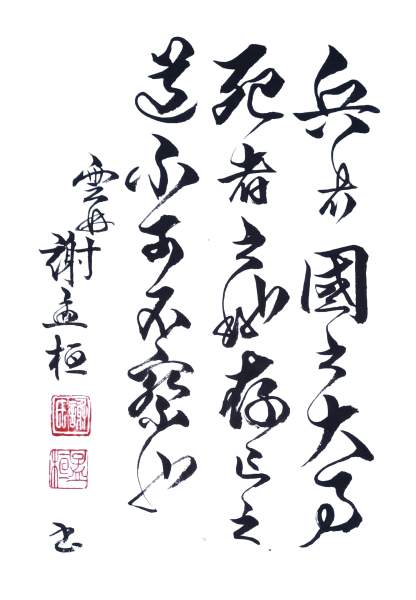 兵者國之大事
死者之地存亡之
道不可不察也
雲
謝孟桓
書